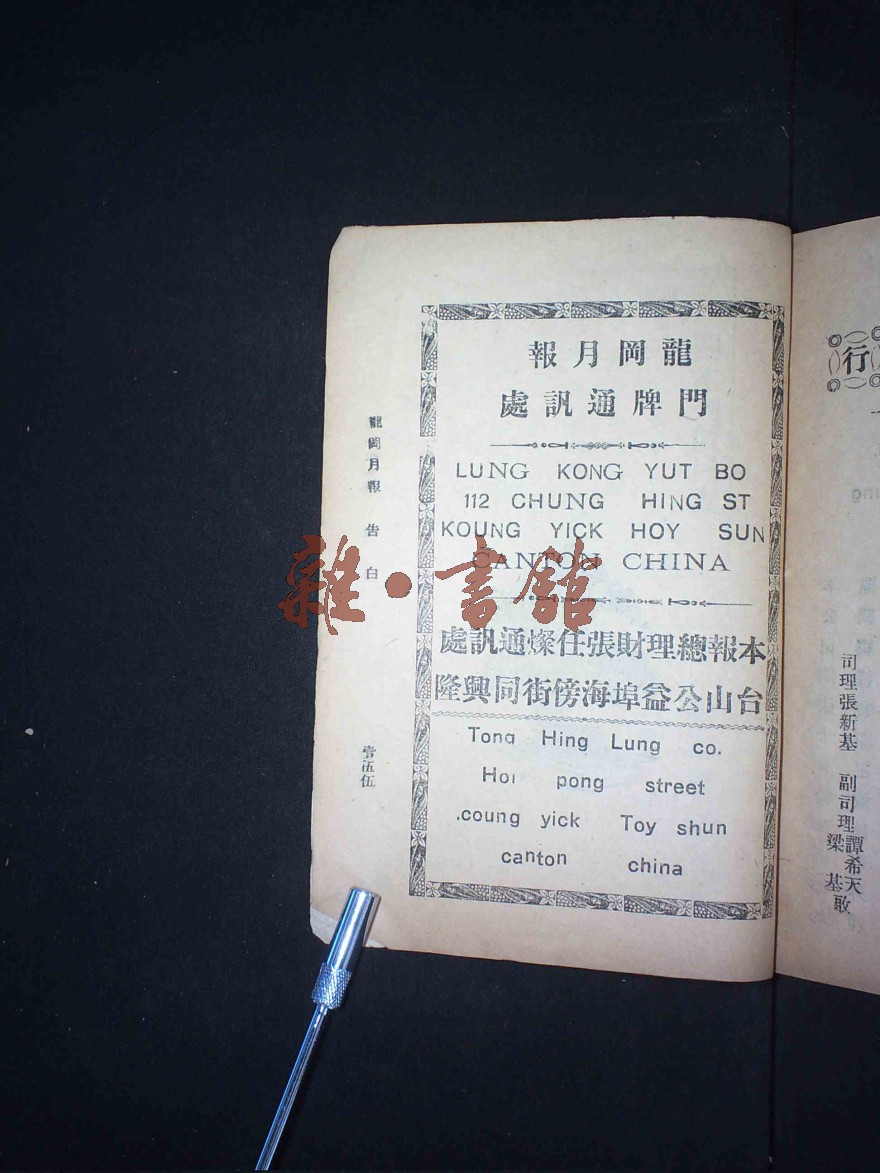 龍岡月報
門牌通訊處
LUNG KONG YUT BO
112 CHUNG HING ST
KOUNG YICK HOY SUN
CANTON CHINA
本報總理財張任燦通訊處
台山公益埠海傍街同興隆
Tong Hing Lung co.
Hoi pong street
.coung yick Toy shun
canton china
龍岡月報 告白
壹伍伍
雜·書館
行
司理張新基 副司理譚希天
梁基敢